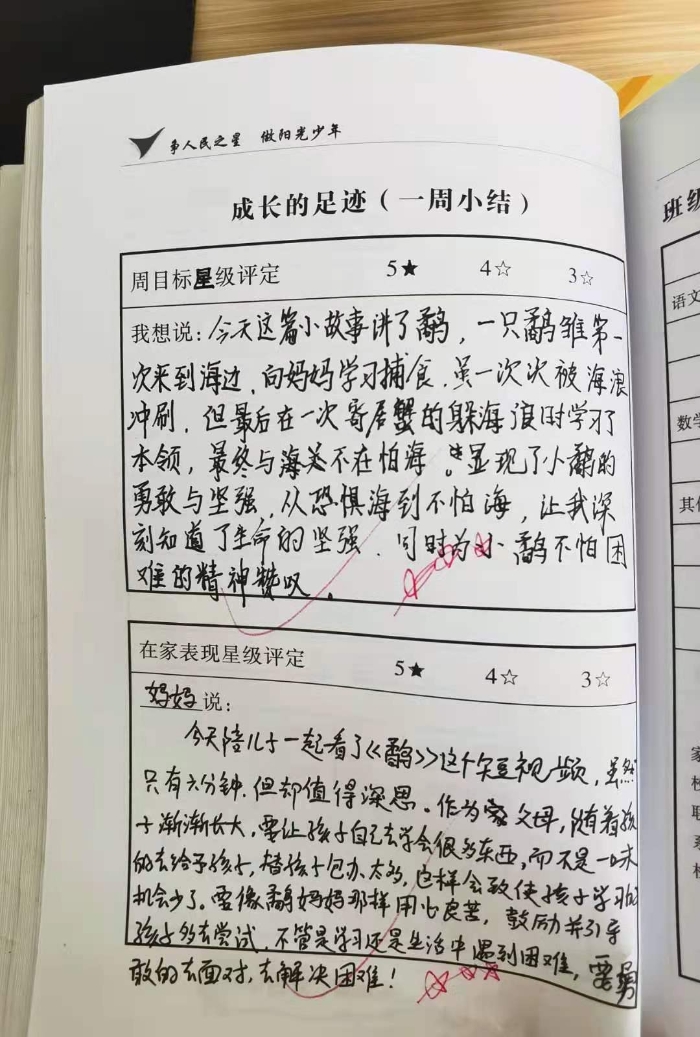 争人民之星 做阳光少年
成长的足迹（一周小结）
周目标星级评定 5★ 4☆ 3☆
我想说：今天这篇小故事讲了鹬，一只鹬雏第一
次来到海边，向妈妈学习捕食，虽一次次被海浪
冲刷，但最后在一次寄居蟹的躲海浪时学习了
本领，最终与海为不在怕海。显现了小鹬的
勇敢与坚强，从恐惧海到不怕海，让我深
刻知道了生命的坚强．同时为小鹬不怕困
难的精神赞叹．
在家表现星级评定 5★ 4☆ 3☆
妈妈说：
今天陪儿子一起看了《鹬》这个短视频，虽然
只有六分钟，但却值得深思。作为家父母，随着孩
子渐渐长大，要让孩子自己去学会很多东西，而不是一味
的去给予孩子，替孩子包办太多，这样会致使孩子学习的
机会少了。要像鹬妈妈那样用心良苦，鼓励并引导
孩子多去尝试，不管是学习还是生活中遇到困难，要勇
敢的去面对，去解决困难！
班级
语文
数学
其他